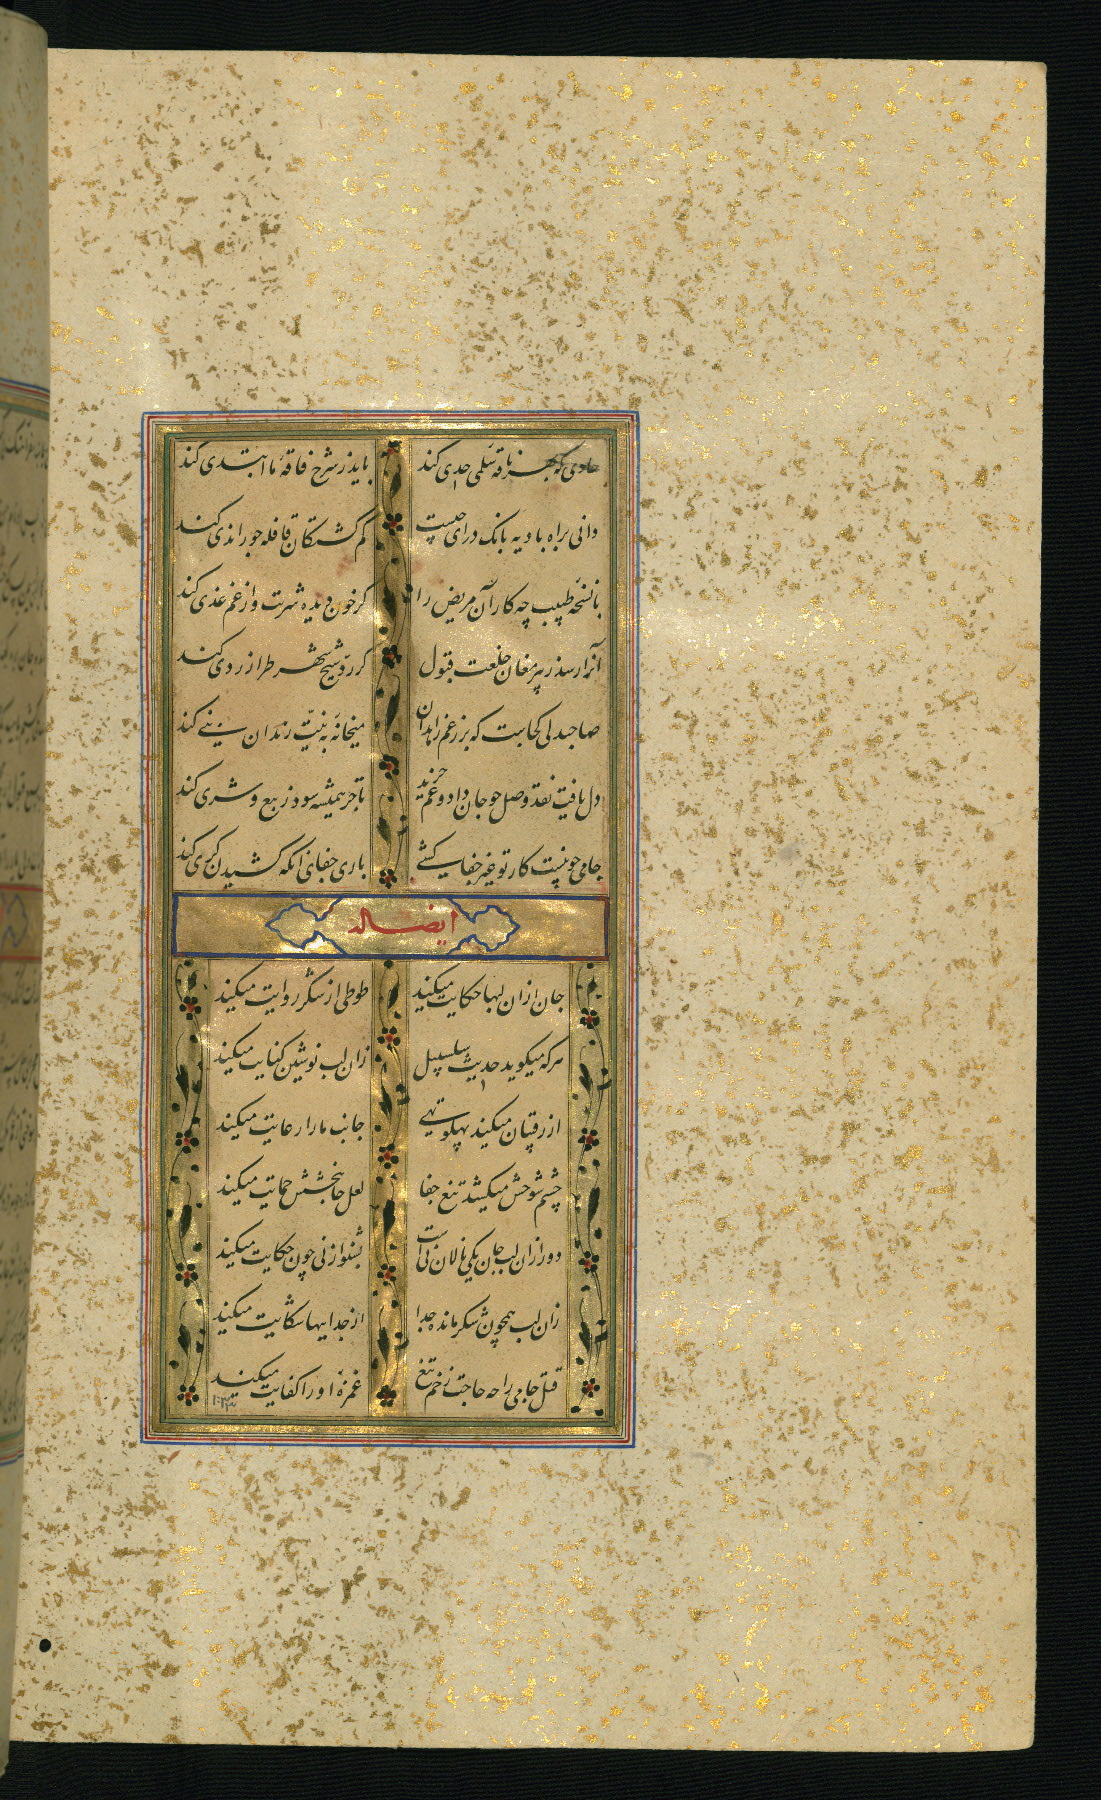 حادی که بهر ناقه سلمی حدی کند باید ز شرح فاقه ما ابتدی کند
دانی براه بادیه بانک درای چیست کم گشتکان قافله جو را ندی کند
با نسخه طبیب چه کار آن مریض را کز خون دیده شربت و از غم غذی کند
آنرا رسد ز پیر مغان خلعت قبول کز ردّ شیخ شهر طراز ردی کند
صاحبدلی کجاست که بر زعم زاهدان میخانهٔ به نیّت رندان بنی کند
دل یافت نقد وصل چو جان داد و غم خرید تاجر همیشه سود ز بیع و شری کند
جامی چو نیست کار تو غیر جفا کشی باری جفای آنکه کشیدن کری کند
ایضا له
جان از ان لبها حکایت میکند طوطی از شکر روایت میکند
هرکه میکوید حدیث سلسبیل زان لب نوشین کنایت میکند
از رقیبان میکند پهلو تهی جانب ما را رعایت میکند
چشم شوخش میکشد تیغ جفا لعل جانبخشش حمایت میکند
دور ازان لب جان یکی نالان نی است بشنو از نی چون حکایت میکند
زان لب همچون شکر مانده جدا از جداییها شکایت میکند
قتل جامی را چه حاجت زخم تیغ غمزهٔ او را کفایت میکند